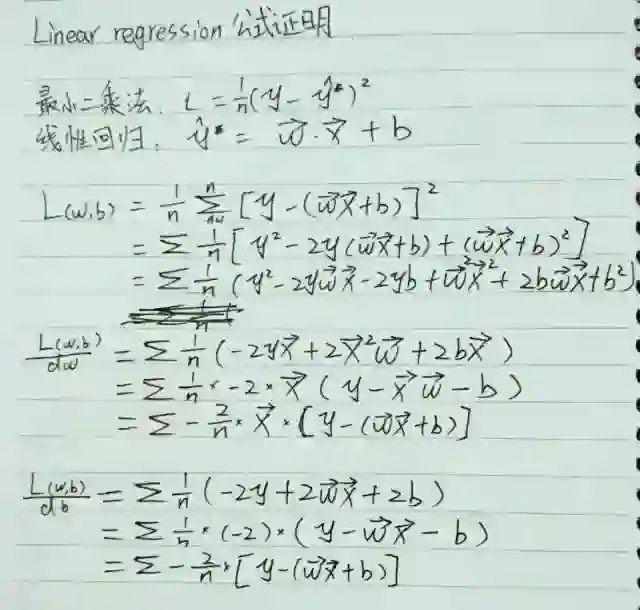 Linear regression 公式证明
最小二乘法. L = 1/n (y - ŷ*)²
线性回归: ŷ* = w⃗·x⃗ + b
L(w,b) = 1/n Σ [y - (w⃗x⃗+b)]²
= Σ 1/n [y² - 2y(w⃗x⃗+b) + (w⃗x⃗+b)²]
= Σ 1/n (y² - 2yw⃗x⃗ - 2yb + w⃗²x⃗² + 2bw⃗x⃗ + b²)
L(w,b)/dw = Σ 1/n (-2yx⃗ + 2x⃗²w⃗ + 2bx⃗)
= Σ 1/n * -2 * x⃗ (y - x⃗w⃗ - b)
= Σ - 2/n * x⃗ * [y - (w⃗x⃗+b)]
L(w,b)/db = Σ 1/n (-2y + 2w⃗x⃗ + 2b)
= Σ 1/n * (-2) * (y - w⃗x⃗ - b)
= Σ - 2/n * [y - (w⃗x⃗+b)]